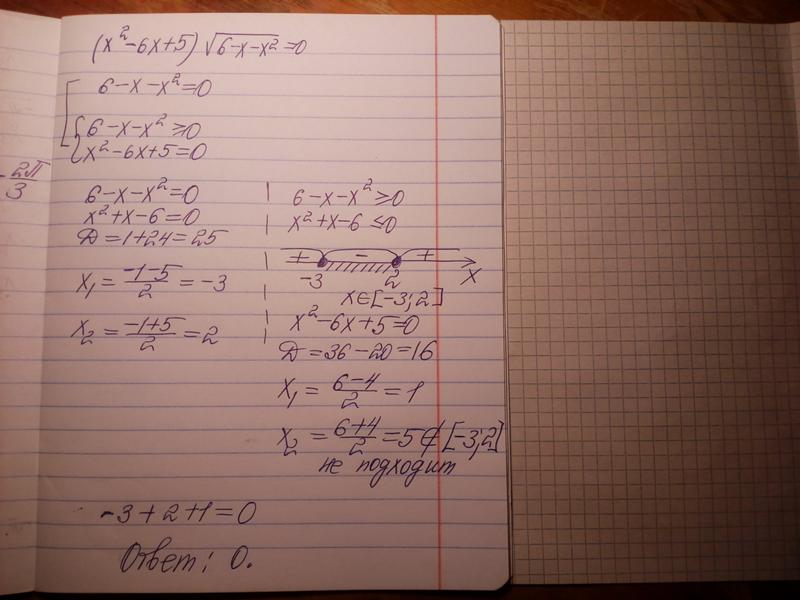 (x²-6x+5)√(6-x-x²)=0
6-x-x²=0
6-x-x²≥0
x²-6x+5=0
-2π/3
6-x-x²=0
x²+x-6=0
D=1+24=25
x₁=(-1-5)/2=-3
x₂=(-1+5)/2=2
6-x-x²≥0
x²+x-6≤0
+ - +
-3 2 x
x∈[-3;2]
x²-6x+5=0
D=36-20=16
x₁=(6-4)/2=1
x₂=(6+4)/2=5∉[-3;2]
не подходит
-3+2+1=0
Ответ: 0.